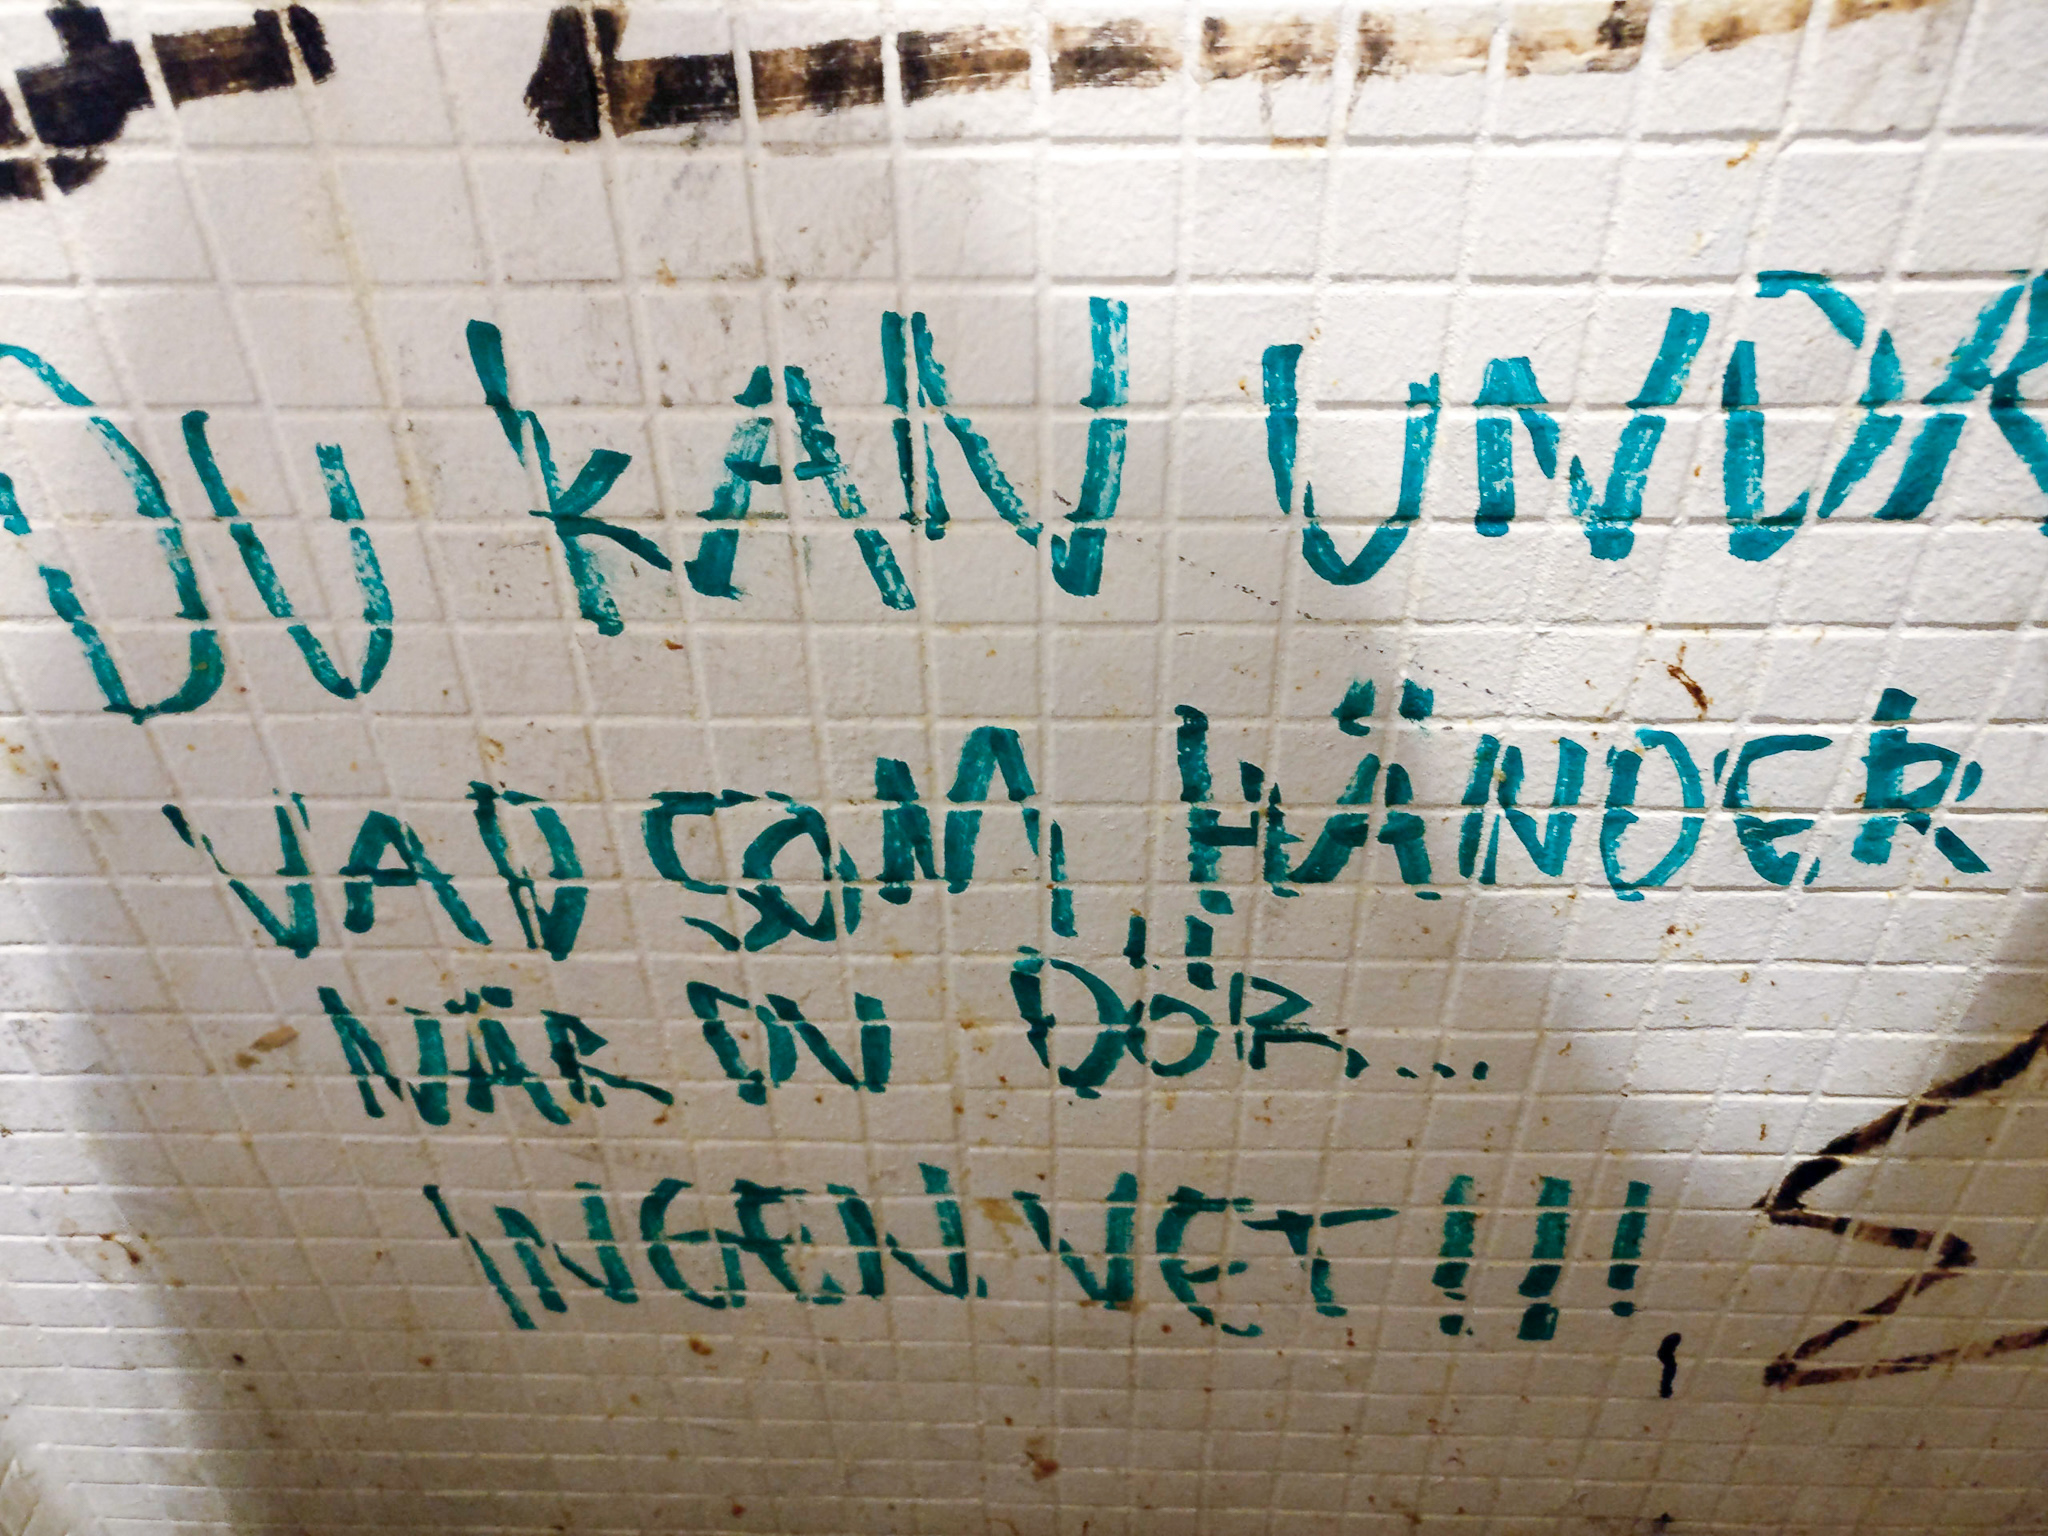 DU KAN UNDR
VAD SOM HÄNDER
NÄR DU DÖR...
INGEN VET!!!